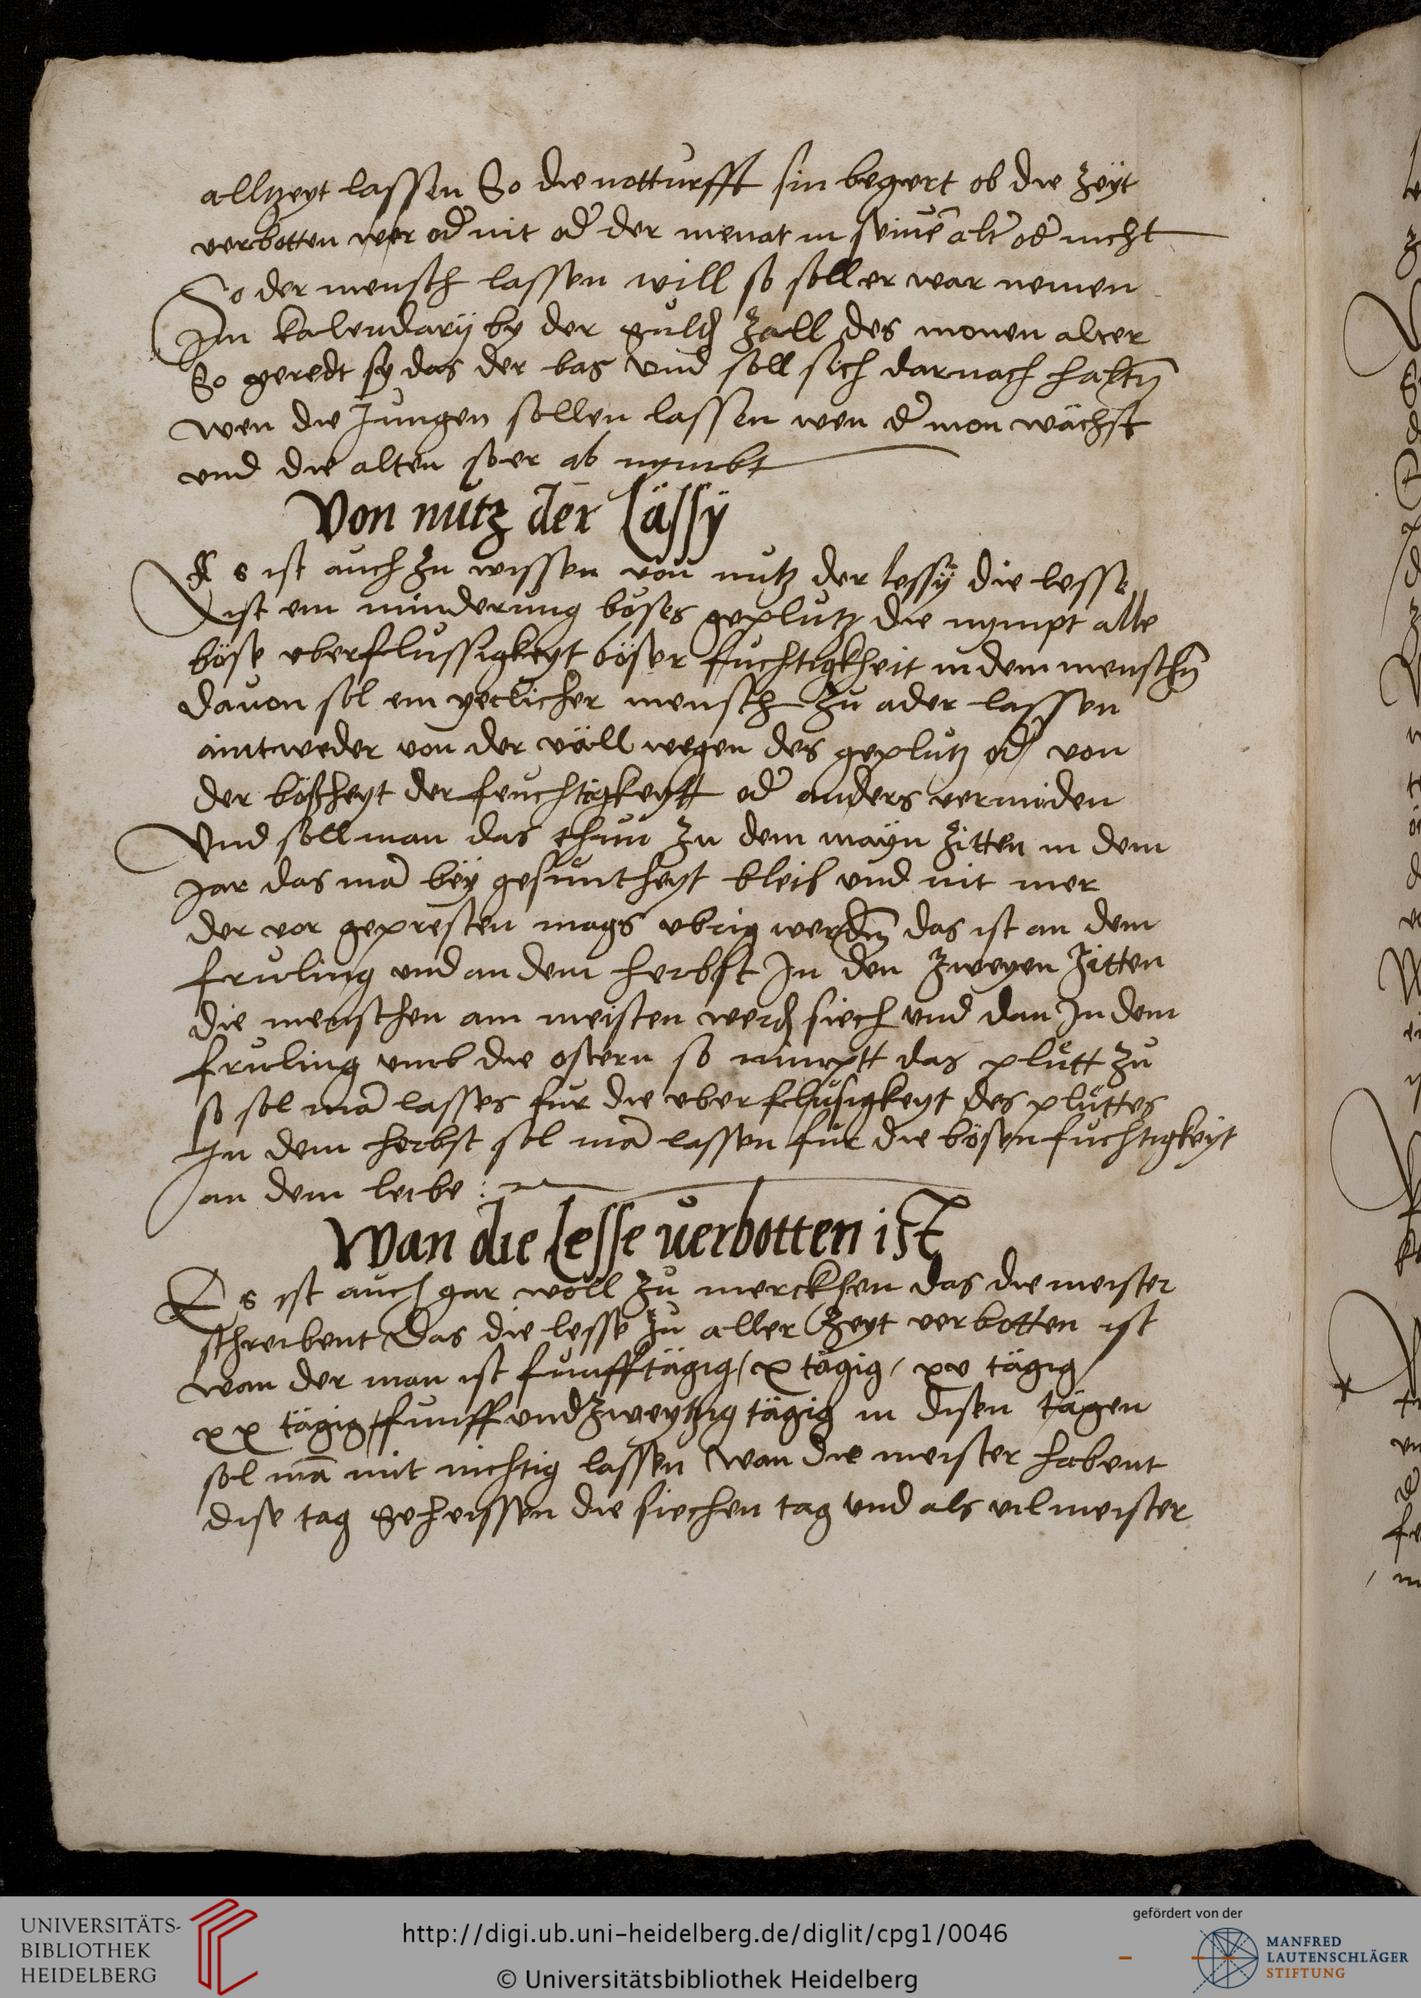 alltzeyt lassen So die notturfft sin begert ob die zeyt
verbotten wer od nit od der monat in seinē alt od nicht
So der mensch lassen will so soll er war nemen
Im kalendary by der guld zall des monen alter
So geredt sy das der bas und soll sich darnach haltn
wen die Jungen sollen lassen wen d mon wächst
und die alten so er ab nymbt
Von nutz der Lässy
Es ist auch zu wissen von nutz der lessy die lesse
ist ein minderung böses geplutz die nympt alle
böse uberflussigkeyt böser fuchtigkheit in dem menschn
davon sol ein yetlicher mensch zu ader lassen
aintweder von der völl wegen des geplutz od von
der bößheyt der feuchtigkeytt od anders vermiden
Und soll man das thun zu dem mayn zitten in dem
Jar das mā bey gesuntheyt bleib und nit mer
der vor gepresten mags ubrig werdn das ist an dem
fruling und an dem herbst In den zweyen zitten
die menschen am meisten werd siech und dan In dem
fruling umb die ostern so nimptt das plutt zu
so sol mā lasses fur die uberflusigkeyt des pluttes
In dem herbst sol mā lassen fur die bösen fuchtigkeyt
an dem leibe :
Wan die Lesse verbotten ist
Es ist auch gar woll zu merckhen das die meister
schreibent Das die lesse zu aller Zeyt verbotten ist
wan der man ist funfftägig / x tägig / xv tägig
xx tägig / funff und zweytzig tägig in disen tägen
sol mā nit nichtig lassen Wan die meister habent
dise tag geheissen die siechen tag und als vil meister
UNIVERSITÄTS-
BIBLIOTHEK
HEIDELBERG
http://digi.ub.uni-heidelberg.de/diglit/cpg1/0046
© Universitätsbibliothek Heidelberg
gefördert von der
MANFRED
LAUTENSCHLÄGER
STIFTUNG